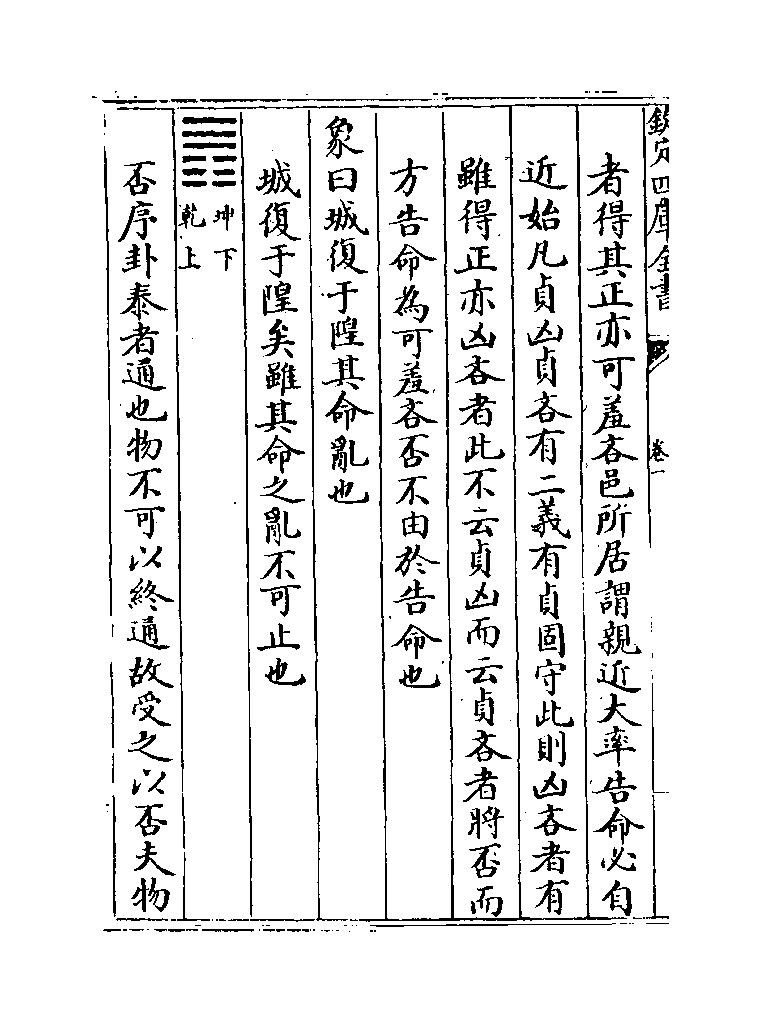 欽定四庫全書
卷一
者得其正亦可羞吝邑所居謂親近大率告命必自
近始凡貞凶貞吝有二義有貞固守此則凶吝者有
雖得正亦凶吝者此不云貞凶而云貞吝者將否而
方告命為可羞吝否不由於告命也
象曰城復于隍其命亂也
城復于隍矣雖其命之亂不可止也
坤下
乾上
否序卦泰者通也物不可以終通故受之以否夫物